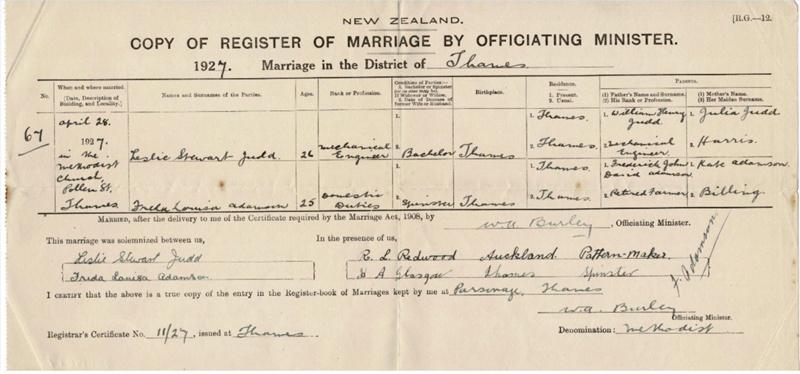 NEW ZEALAND.
[R.G.—12.
COPY OF REGISTER OF MARRIAGE BY OFFICIATING MINISTER.
1927. Marriage in the District of Thames.
No.
When and where married.
(Date, Description of Building, and Locality.)
Names and Surnames of the Parties.
Ages.
Rank or Profession.
Condition of Parties:—
1. Bachelor or Spinster (or as case may be).
2. Widower or Widow.
3. Date of Decease of former Wife or Husband.
Birthplace.
Residence.
1. Present.
2. Usual.
PARENTS.
(1) Father's Name and Surname.
(2) His Rank or Profession.
(1) Mother's Name.
(2) Her Maiden Surname.
67
April 28.
1927.
in the
Methodist
Church,
Pollen St.
Thames
Leslie Stewart Judd.
26
Mechanical Engineer
1.
2. Bachelor
Thames
1. Thames.
2. Thames.
1. William Henry Judd.
2. Mechanical Engineer
1. Julia Judd
2. Harris.
Freda Louisa Adamson
25
Domestic Duties
1.
2. Spinster
Thames
1. Thames.
2. Thames.
1. Frederick John David Adamson.
2. Retired Farmer
1. Kate Adamson.
2. Billing
MARRIED, after the delivery to me of the Certificate required by the Marriage Act, 1908, by W.A. Burley, Officiating Minister.
This marriage was solemnized between us,
Leslie Stewart Judd
Freda Louisa Adamson.
In the presence of us,
R. L. Redwood Auckland Pattern-Maker.
A Glasgow Thames Spinster
Adamson.
I CERTIFY that the above is a true copy of the entry in the Register-book of Marriages kept by me at Parsonage, Thames
W.A. Burley
Officiating Minister.
Registrar's Certificate No. 11/27, issued at Thames.
Denomination: Methodist